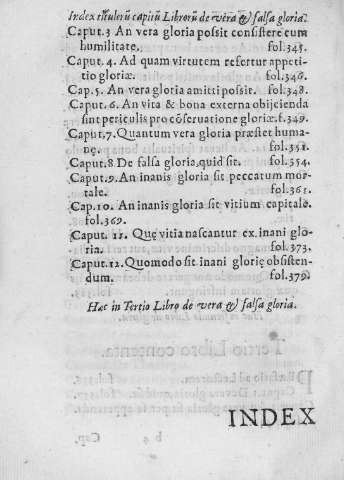 Index titulorũ capitũ Librorũ de vera & falsa gloria.
Caput.3 An vera gloria possit consistere cum
humilitate. fol.343.
Caput. 4. Ad quam virtutem refertur appeti-
tio gloriæ. fol.346.
Cap.5. An vera gloria amitti possit. fol.348.
Caput.6. An vita & bona externa obijcienda
sint periculis pro cõseruatione gloriæ.f.349.
Caput.7. Quantum vera gloria præstet huma-
nę. fol.351.
Caput.8 De falsa gloria, quid sit. fol.354.
Caput.9. An inanis gloria sit peccatum mor-
tale. fol.361.
Cap.10. An inanis gloria sit vitium capitale.
fol.369.
Caput. 11. Quę vitia nascantur ex inani glo-
ria. fol.373.
Caput.12. Quomodo sit inani glorię obsisten-
dum. fol.379.
Hæc in Tertio Libro de vera & falsa gloria.
INDEX